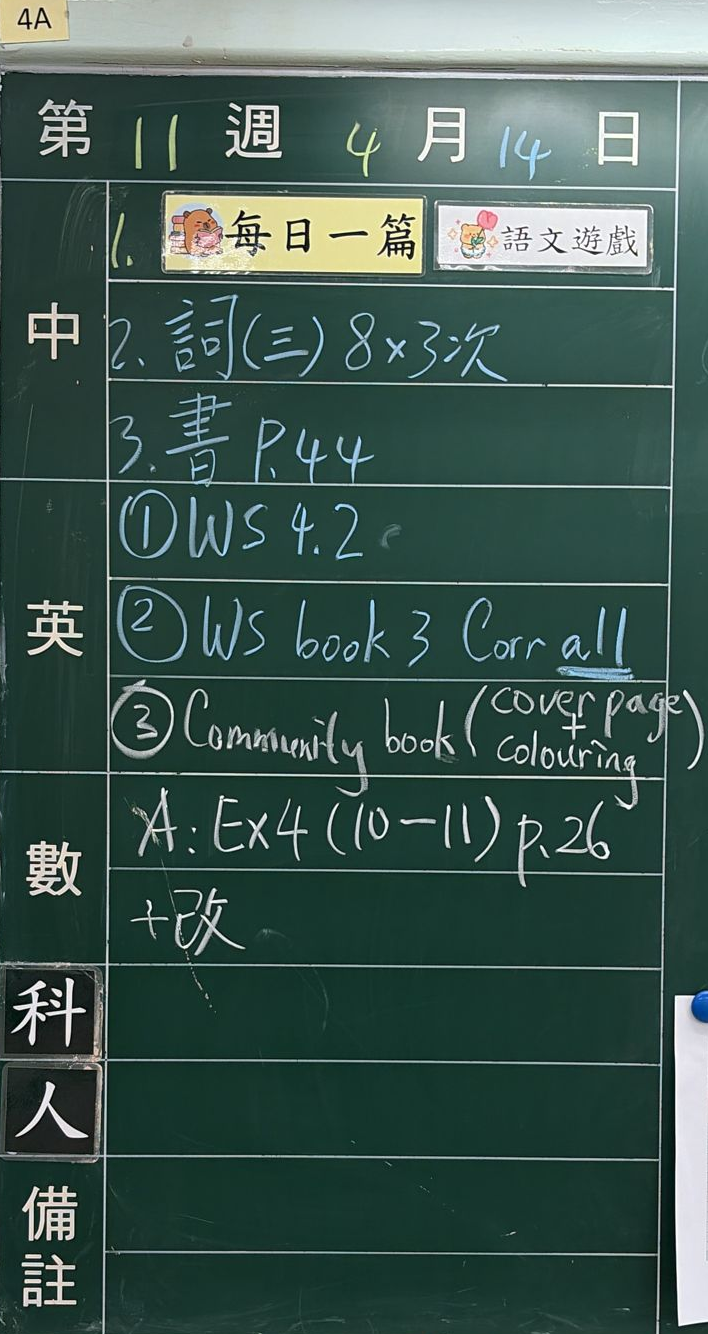 4A
第 11 週 4 月 14 日
中
1. 每日一篇 語文遊戲
2. 詞(三) 8×3次
3. 書 P.44
英
① WS 4.2
② WS book 3 Corr all
③ Community book (cover page + colouring)
數
A: Ex4 (10-11) p.26
+改
科
人
備註